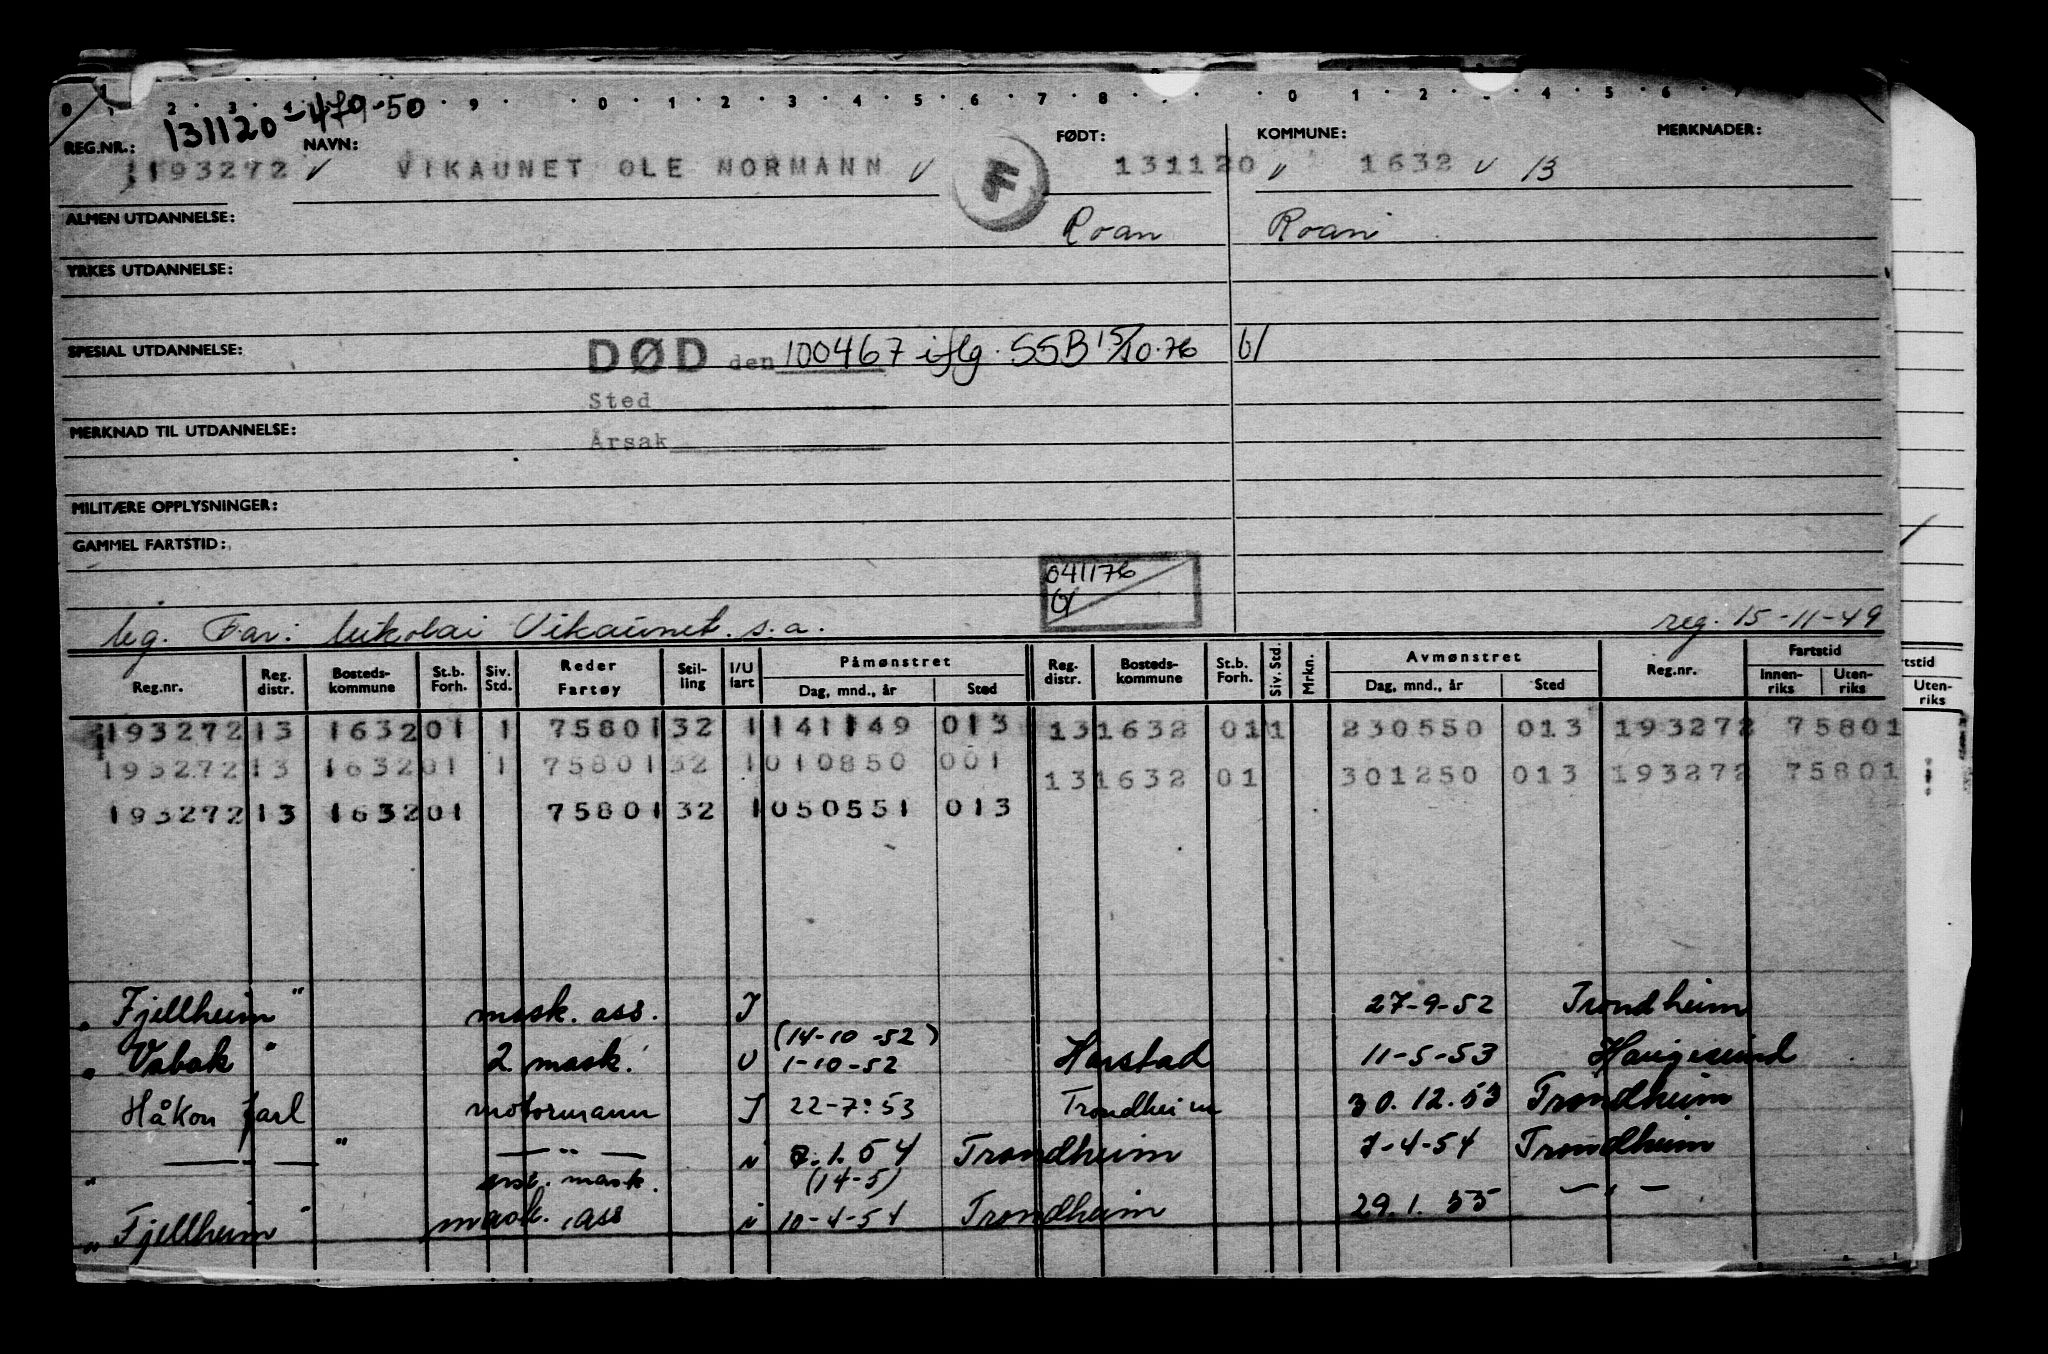 0 1 2 3 4 9 0 1 2 3 4 5 6 7 8 0 1 2 3 4 5 6 7
131120-479-50
REG.NR.: NAVN: FØDT: KOMMUNE: MERKNADER:
193272 v VIKAUNET OLE NORMANN v F 131120 v 1632 v 13
ALMEN UTDANNELSE: Roan Roan
YRKES UTDANNELSE:
SPESIAL UTDANNELSE: DØD den 100467 iflg. SSB 15/10.76
Sted
MERKNAD TIL UTDANNELSE:
Årsak
MILITÆRE OPPLYSNINGER:
GAMMEL FARTSTID:
041176
leg. Far: Nikolai Vikaunet. s.a. reg. 15-11-49
Reg.nr. Reg. distr. Bosteds-kommune St.b. Forh. Siv. Std. Reder Fartøy Stil-ling I/U fart Påmønstret Dag, mnd., år Sted Reg. distr. Bosteds-kommune St.b. Forh. Siv. Std. Mrkn. Avmønstret Dag, mnd., år Sted Reg.nr. Fartstid Innen-riks Uten-riks
tstid Uten-riks
193272 13 1632 01 1 75801 32 1 141149 013 13 1632 01 1 230550 013 193272 75801
193272 13 1632 01 1 75801 32 1 010850 001 13 1632 01 301250 013 193272 75801
193272 13 1632 01 75801 32 1 050551 013
" Fjellheim " mask. ass. I 27-9-52 Trondheim
(14-10-52)
" Vabak " 2 mask. U 1-10-52 Harstad 11-5-53 Haugesund
Håkon Jarl motormann I 22-7-53 Trondheim 30.12.53 Trondheim
" — " — — " — i 7.1.54 Trondheim 7-4-54 Trondheim
erst. mask. (14-5)
" Fjellheim " mask. ass i 10-4-54 Trondheim 29.1.55 — " —